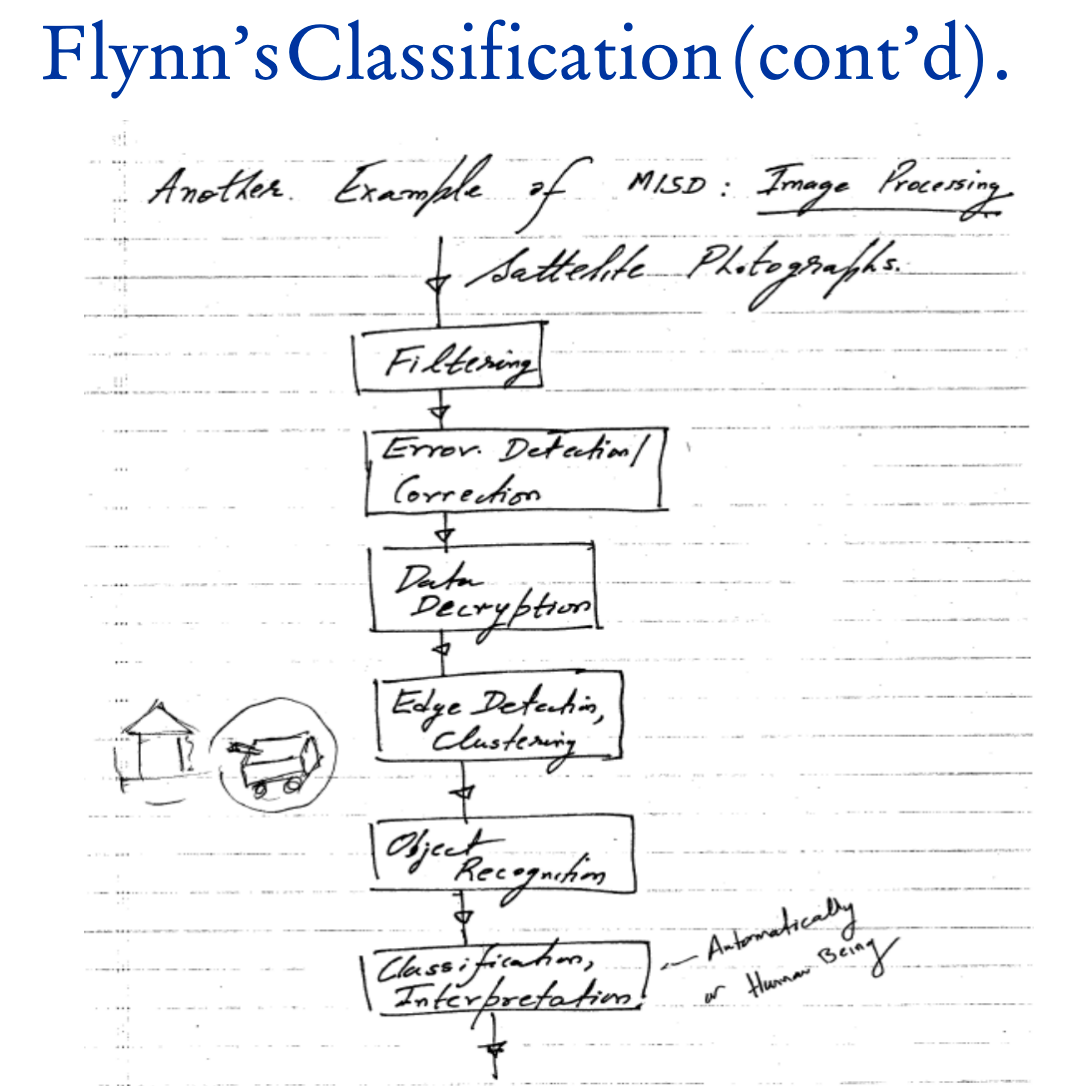 Flynn's Classification (cont'd).
Another. Example of MISD: Image Processing
Sattelite Photographs.
Filtering
Error. Detection/
Correction
Data
Decryption
Edge Detection,
Clustering
Object
Recognition
Classification,
Interpretation.
Automatically
or Human Being